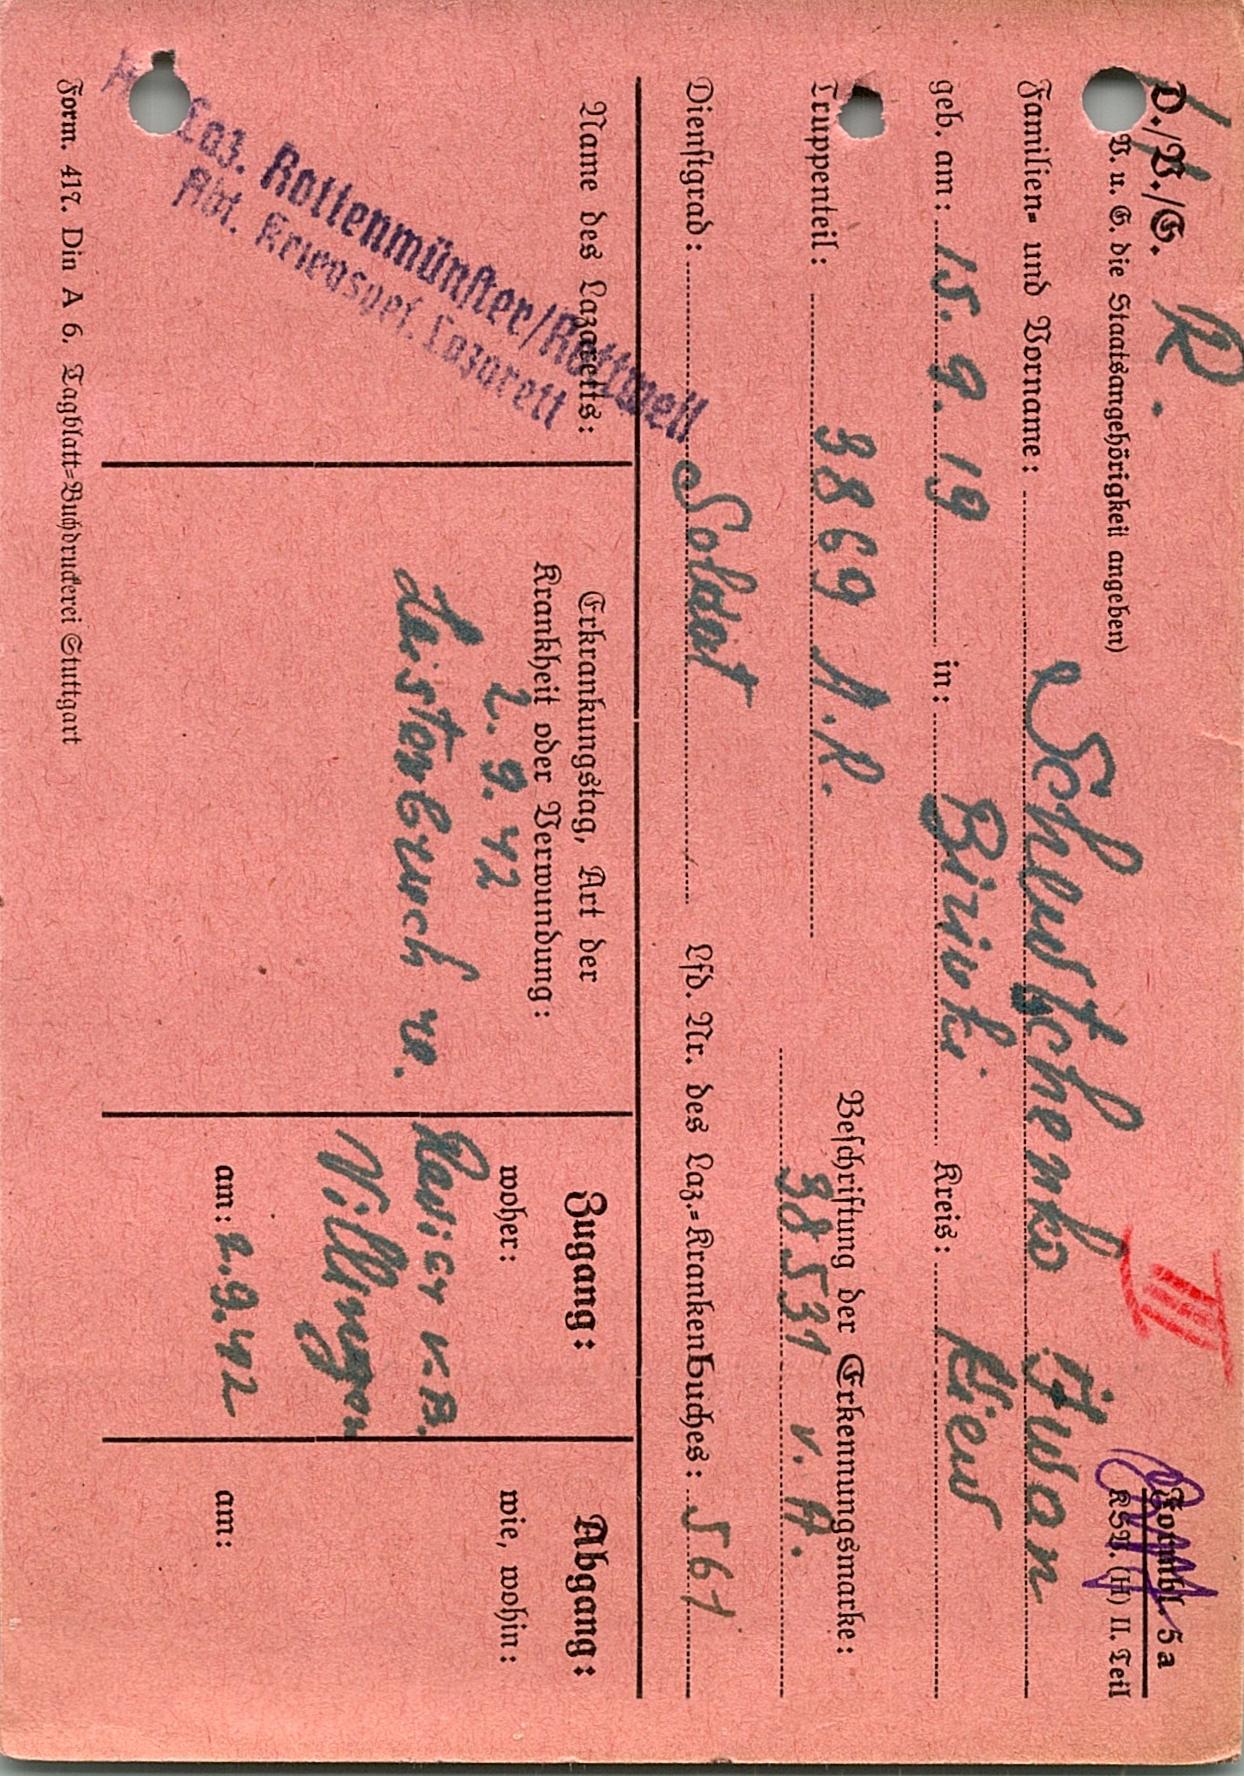 D./V./G. R.
V. u. G. die Staatsangehörigkeit angeben)
III
Formbl. 5a
KSV. (H) II. Teil
Familien- und Vorname: Schewtschenko Iwan
geb. am: 15. 9. 19 in: Biriwki Kreis: Kiew
Truppenteil: 3869 A.R.
Beschriftung der Erkennungsmarke:
38531 V. A.
Dienstgrad: Soldat Lfd. Nr. des Laz.-Krankenbuches: 561
Name des Lazaretts:
Laz. Rottenmünster/Rottweil
Abt. Kriegsgef. Lazarett
Erkrankungstag, Art der
Krankheit oder Verwundung:
2. 9. 42
Leistenbruch re.
Zugang:
woher:
Revier V.B.
Villingen
am: 2.9.42
Abgang:
wie, wohin:
am:
Form. 417. Din A 6. Tagblatt-Buchdruckerei Stuttgart